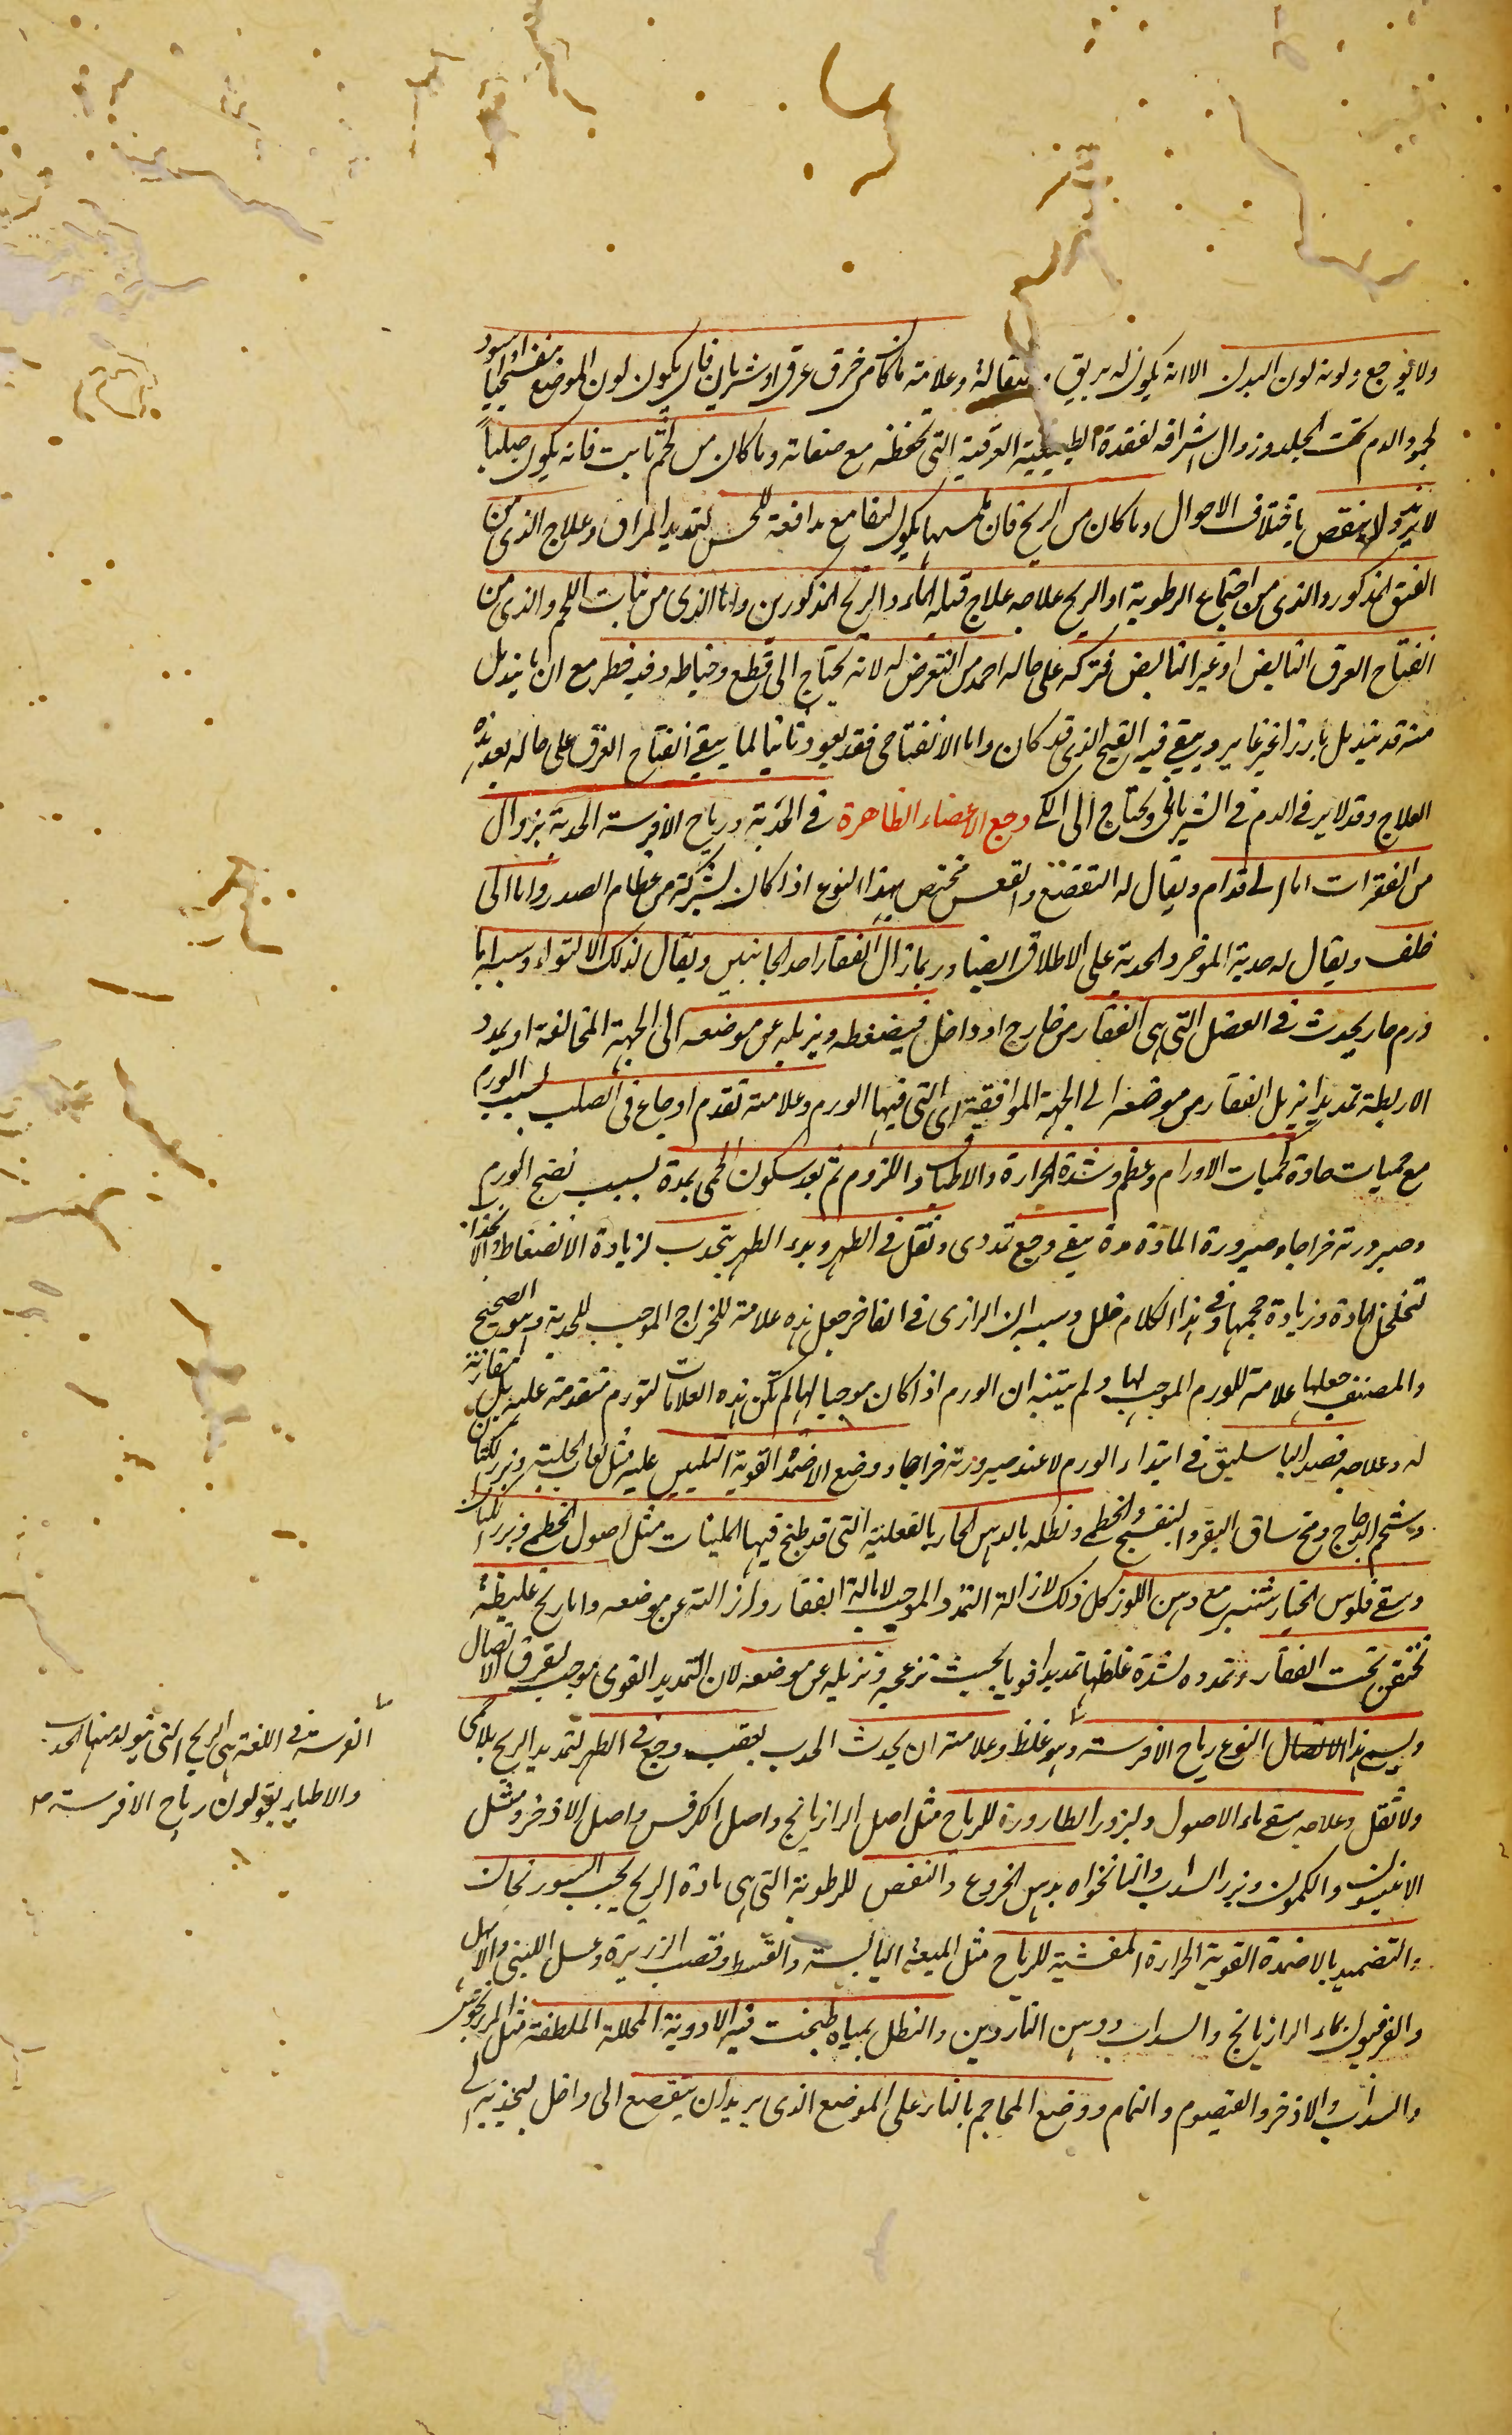 ولا يوجع ولونه لون البدن الا انه يكون له بريق وثقالة وعلامة ما كان من خرق عرق او شريان فان يكون لون الموضع بنفسجيا او اسود
لجمود الدم تحت الجلد وزوال اشراقه لفقدة الطبيعية العرقية التى تحفظه مع صفاته وما كان من لحم ثابت فانه يكون صلبا
لا يزيد ولا ينقص باختلاف الاحوال وما كان من الريح فان لمسها يكون لينا مع مدافعة للحس لتمديد المراق وعلاج الذى من
الفتق المذكور والذى من اجتماع الرطوبة او الريح علاجه علاج قيلة الماء والريح المذكورين واما الذى من نبات اللحم والذى من
انفتاح العرق النابض او غير النابض فتركه على حاله احمد من التعرض له لانه يحتاج الى قطع وخياطه وفيه خطر مع ان ما يندمل
منه قد يندمل بارزا غير غاير ويبقى فيه القبح الذى قد كان واما الانفتاحى فقد يعود ثانيا لما يبقى انفتاح العرق على حاله بعد هذه
العلاج وقد لا يرقى الدم فى الشريانى ويحتاج الى الكى وجع الاعضاء الظاهرة فى الحدبة ورياح الافرسة الحدبة بزوال
من الفقرات اما الى قدام ويقال له التقصع والقعس مختص بهذا النوع اذا كان بشركة من عظام الصدر واما الى
خلف ويقال له حدبة المؤخر والحدبة على الاطلاق ايضا وربما زال الفقار احد الجانبين ويقال لذلك الالتواء وسببها اما
ورم حار يحدث فى العضل التى هى الفقار من خارج او داخل فيضغطه ويزيله عن موضعه الى الجهة المخالفة او يمدد
الاربطة تمديدا يزيل الفقار من موضعه الى الجهة الموافقة اى التى فيها الورم وعلامته تقدم اوجاع فى الصلب بسبب الورم
مع حميات حادة كحميات الاورام وعظم وشدة الحرارة والاطباق واللزوم ثم بعد سكون الحمى بمدة بسبب نضج الورم
وصيرورته خراجا وصيرورة المادة مدة يبقى وجع تمددى وثقل فى الظهر وبدء الظهر يتحدب لزيادة الانضغاط والانجذاب
لتخلخل المادة وزيادة حجمها وفى هذا الكلام خلل وسببه ان الرازى فى الفاخر جعل هذه علامة للخراج الموجب للحدبة وهو الصحيح
والمصنف جعلها علامة للورم الموجب لها ولم يتنبه ان الورم اذا كان موجبا لها لم تكن هذه العلامات لتورم متقدمة عليه بل مقارنة
له وعلاجه فصد الباسليق فى ابتداء الورم لا عند صيرورته خراجا ووضع الاضمدة القوية التليين عليه مثل لعاب الحلبة وبزر الكتان
وشحم الدجاج ومخ ساق البقر والبنفسج والخطمى ونطله بالدهن الحار بالفعلية التى قد طبخ فيها الملينات مثل اصول الخطمى وبزر الكتان
وسقى فلوس الخيار شنبر مع دهن اللوز كل ذلك لازالة التمدد الموجب لامالة الفقار وازالته عن موضعه واما ريح غليظة
تحتقن تحت الفقار وتمدده لشدة غلظها تمديدا قويا بحيث تزعجه وتزيله عن موضعه لان التمديد القوى موجب لتفرق الاتصال
ويسمى هذا الاتصال النوع رياح الافرسة وهو غلظ وعلامته ان يحدث الحدب بعقب وجع فى الظهر لتمديد الريح بلا حمى
ولا ثقل وعلاجه سقى ماء الاصول والبزور الطارورة للرياح مثل اصل الرازيانج واصل الكرفس واصل الاذخر ومثل
الانيسون والكمون وبزر السداب والنانخواه بدهن الخروع والنفض للرطوبة التى هى مادة الريح بحب السورنجان
والتضميد بالاضمدة القوية الحرارة المفشية للرياح مثل الميعة اليابسة والقسط وقصب الزريرة وعسل اللبنى والابهل
والفرفيون بماء الرازيانج والسداب ودهن الناردين والنطل بمياه طبخت فيه الادوية المحللة الملطفة مثل المرزنجوش
والسداب والاذخر والقيصوم والنمام ووضع المحاجم بالنار على الموضع الذى يريد ان يتقصع الى داخل ليجذبه الى
الفرسة فى اللغة هى الريح التى يتولد منها الحدب
والاطباء يقولون رياح الافرسة ٣